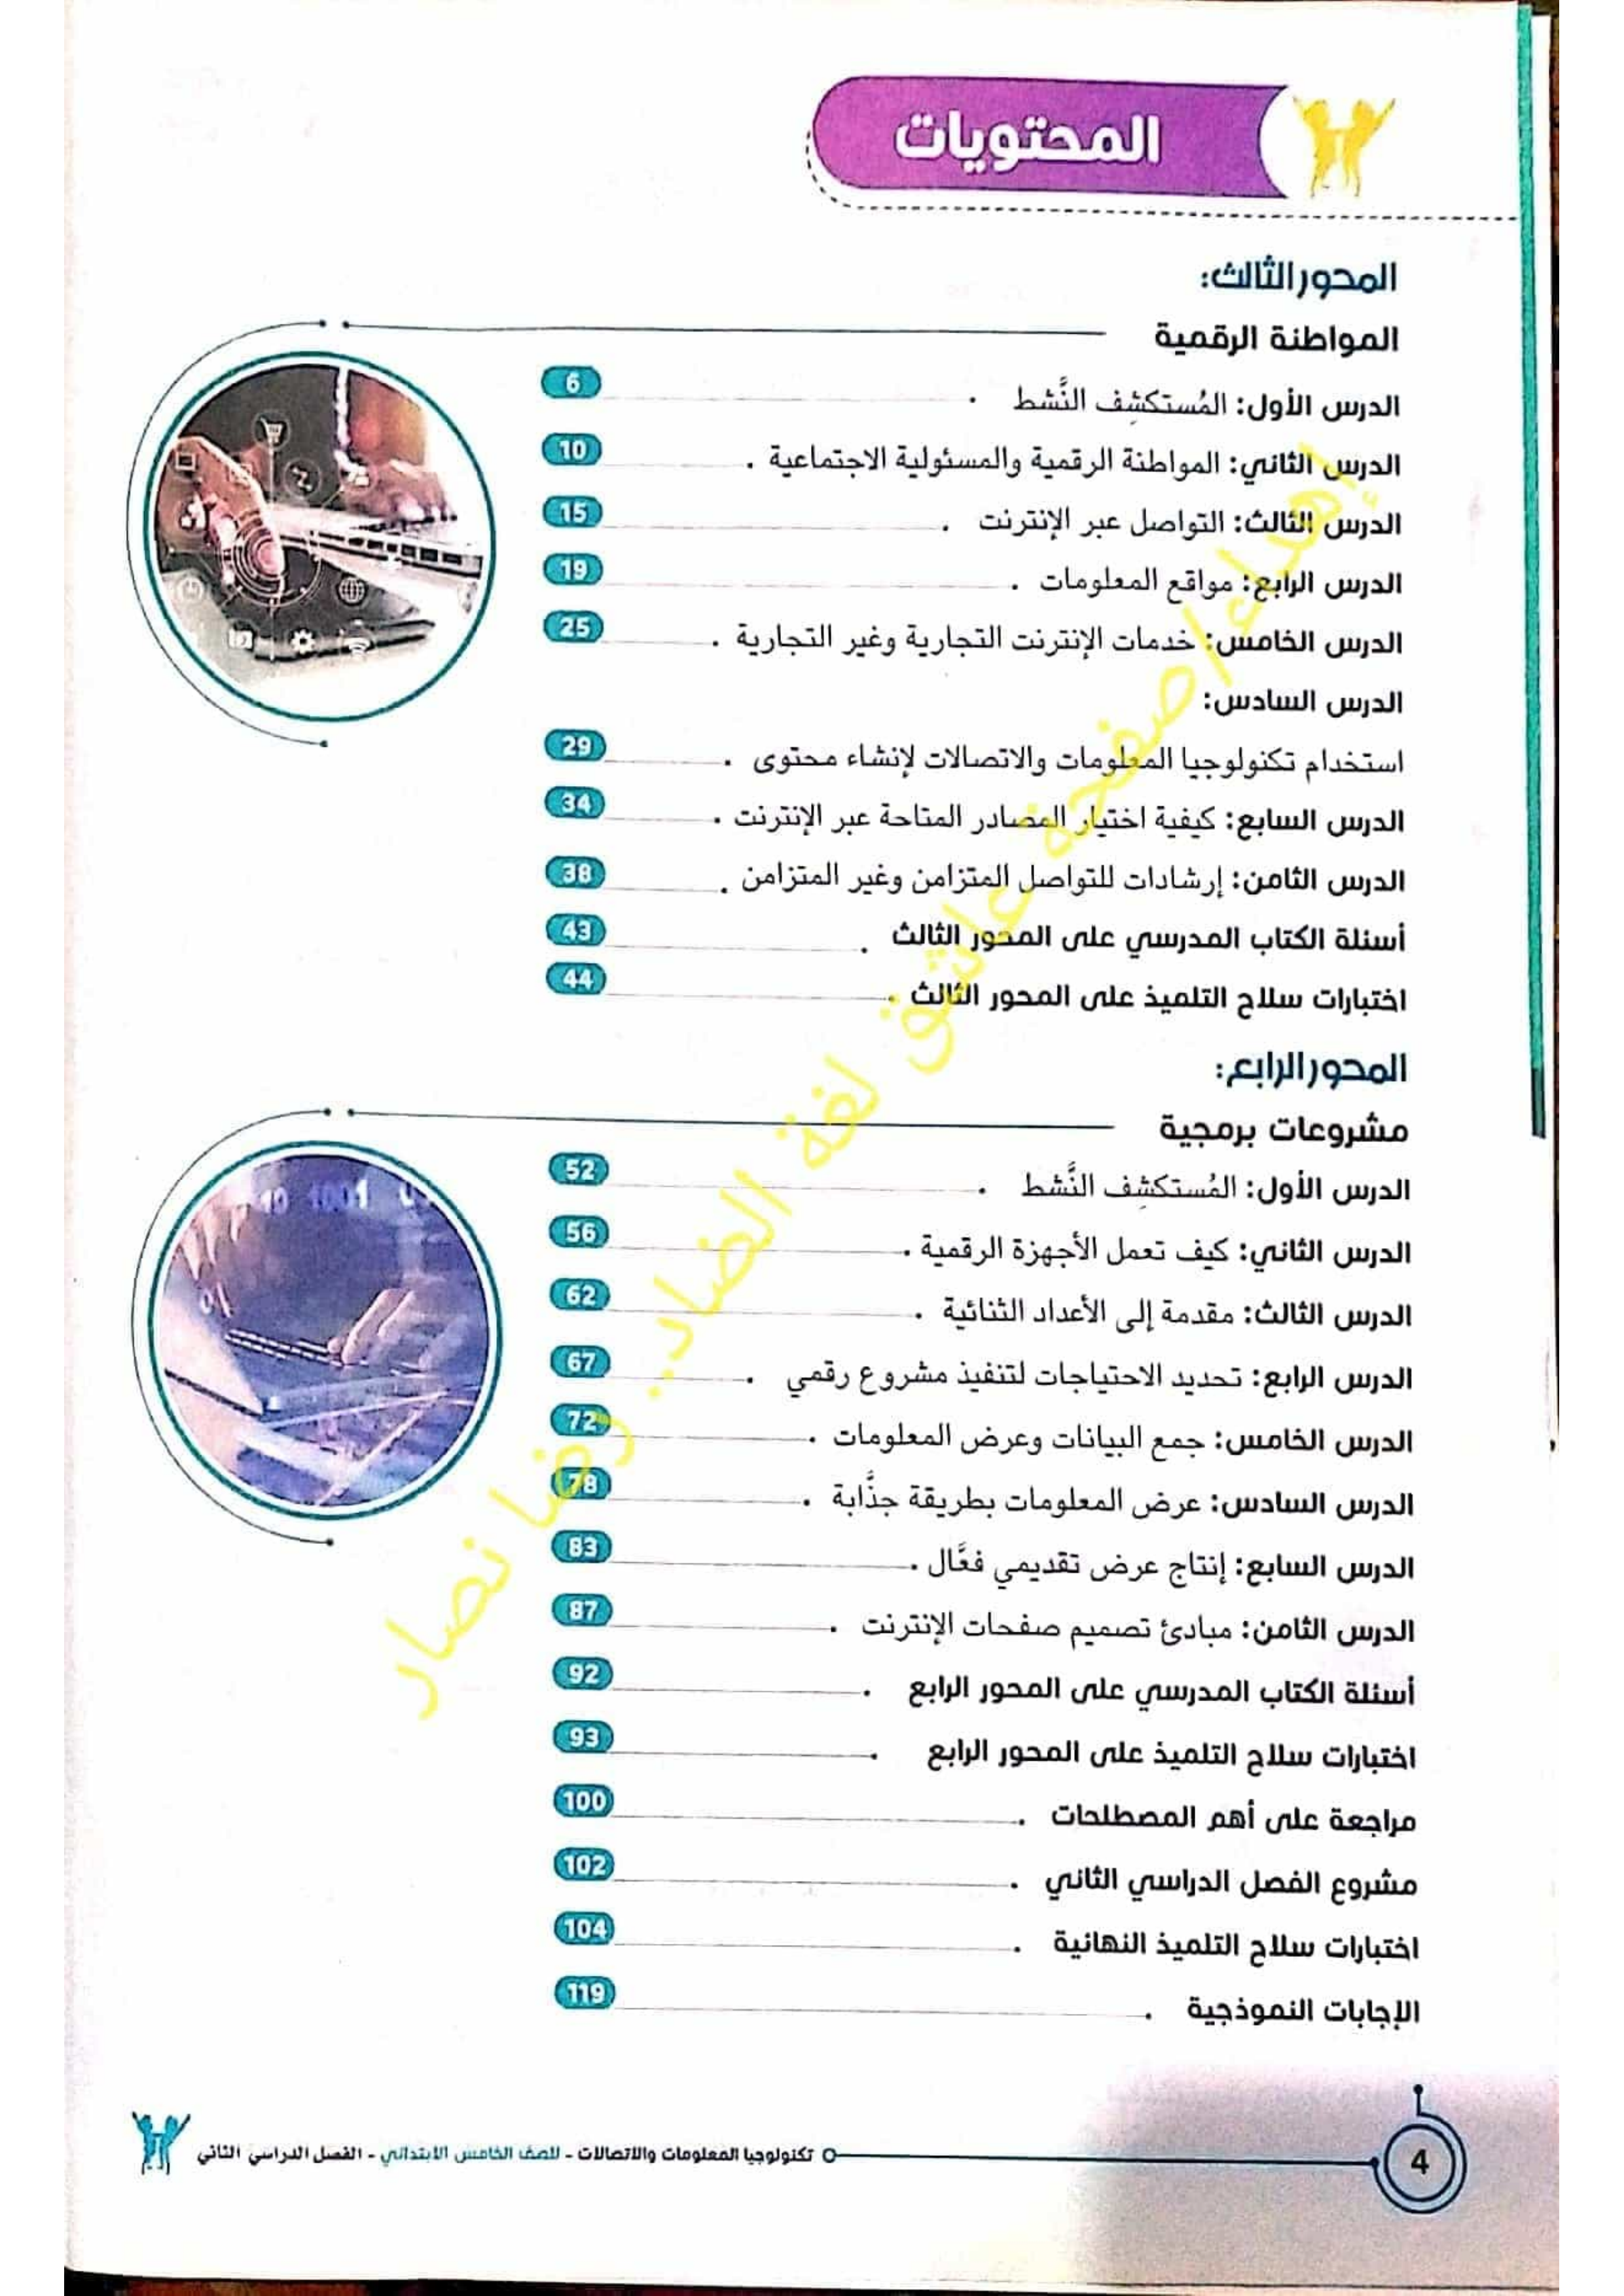 المحتويات
المحور الثالث:
المواطنة الرقمية
الدرس الأول: المُستكشِف النَّشط 6
الدرس الثاني: المواطنة الرقمية والمسئولية الاجتماعية 10
الدرس الثالث: التواصل عبر الإنترنت 15
الدرس الرابع: مواقع المعلومات 19
الدرس الخامس: خدمات الإنترنت التجارية وغير التجارية 25
الدرس السادس:
استخدام تكنولوجيا المعلومات والاتصالات لإنشاء محتوى 29
الدرس السابع: كيفية اختيار المصادر المتاحة عبر الإنترنت 34
الدرس الثامن: إرشادات للتواصل المتزامن وغير المتزامن 38
أسئلة الكتاب المدرسي على المحور الثالث 43
اختبارات سلاح التلميذ على المحور الثالث 44
المحور الرابع:
مشروعات برمجية
الدرس الأول: المُستكشِف النَّشط 52
الدرس الثاني: كيف تعمل الأجهزة الرقمية 56
الدرس الثالث: مقدمة إلى الأعداد الثنائية 62
الدرس الرابع: تحديد الاحتياجات لتنفيذ مشروع رقمي 67
الدرس الخامس: جمع البيانات وعرض المعلومات 72
الدرس السادس: عرض المعلومات بطريقة جذَّابة 78
الدرس السابع: إنتاج عرض تقديمي فعَّال 83
الدرس الثامن: مبادئ تصميم صفحات الإنترنت 87
أسئلة الكتاب المدرسي على المحور الرابع 92
اختبارات سلاح التلميذ على المحور الرابع 93
مراجعة على أهم المصطلحات 100
مشروع الفصل الدراسي الثاني 102
اختبارات سلاح التلميذ النهائية 104
الإجابات النموذجية 119
إهداء/صفحة عاشق لغة الضاد.. رضا نصار
4 تكنولوجيا المعلومات والاتصالات - للصف الخامس الابتدائي - الفصل الدراسي الثاني